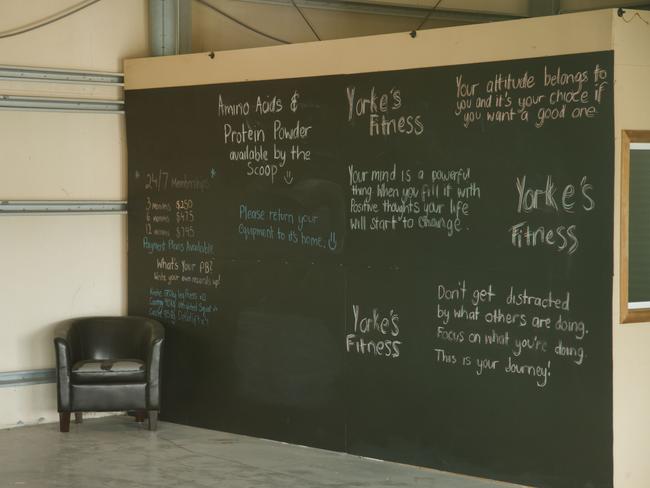 Amino Acids &
Protein Powder
available by the
Scoop
Yorke's
Fitness
Your attitude belongs to
you and it's your choice if
you want a good one
* 24/7 Memberships *
3 months $250
6 months $475
12 months $795
Payment Plans Available
What's Your PB?
Write your own records up!
Please return your
Equipment to it's home.
Your mind is a powerful
thing when you fill it with
Positive thoughts your life
will start to change.
Yorke's
Fitness
Yorke's
Fitness
Don't get distracted
by what others are doing.
Focus on what you're doing.
This is your Journey!